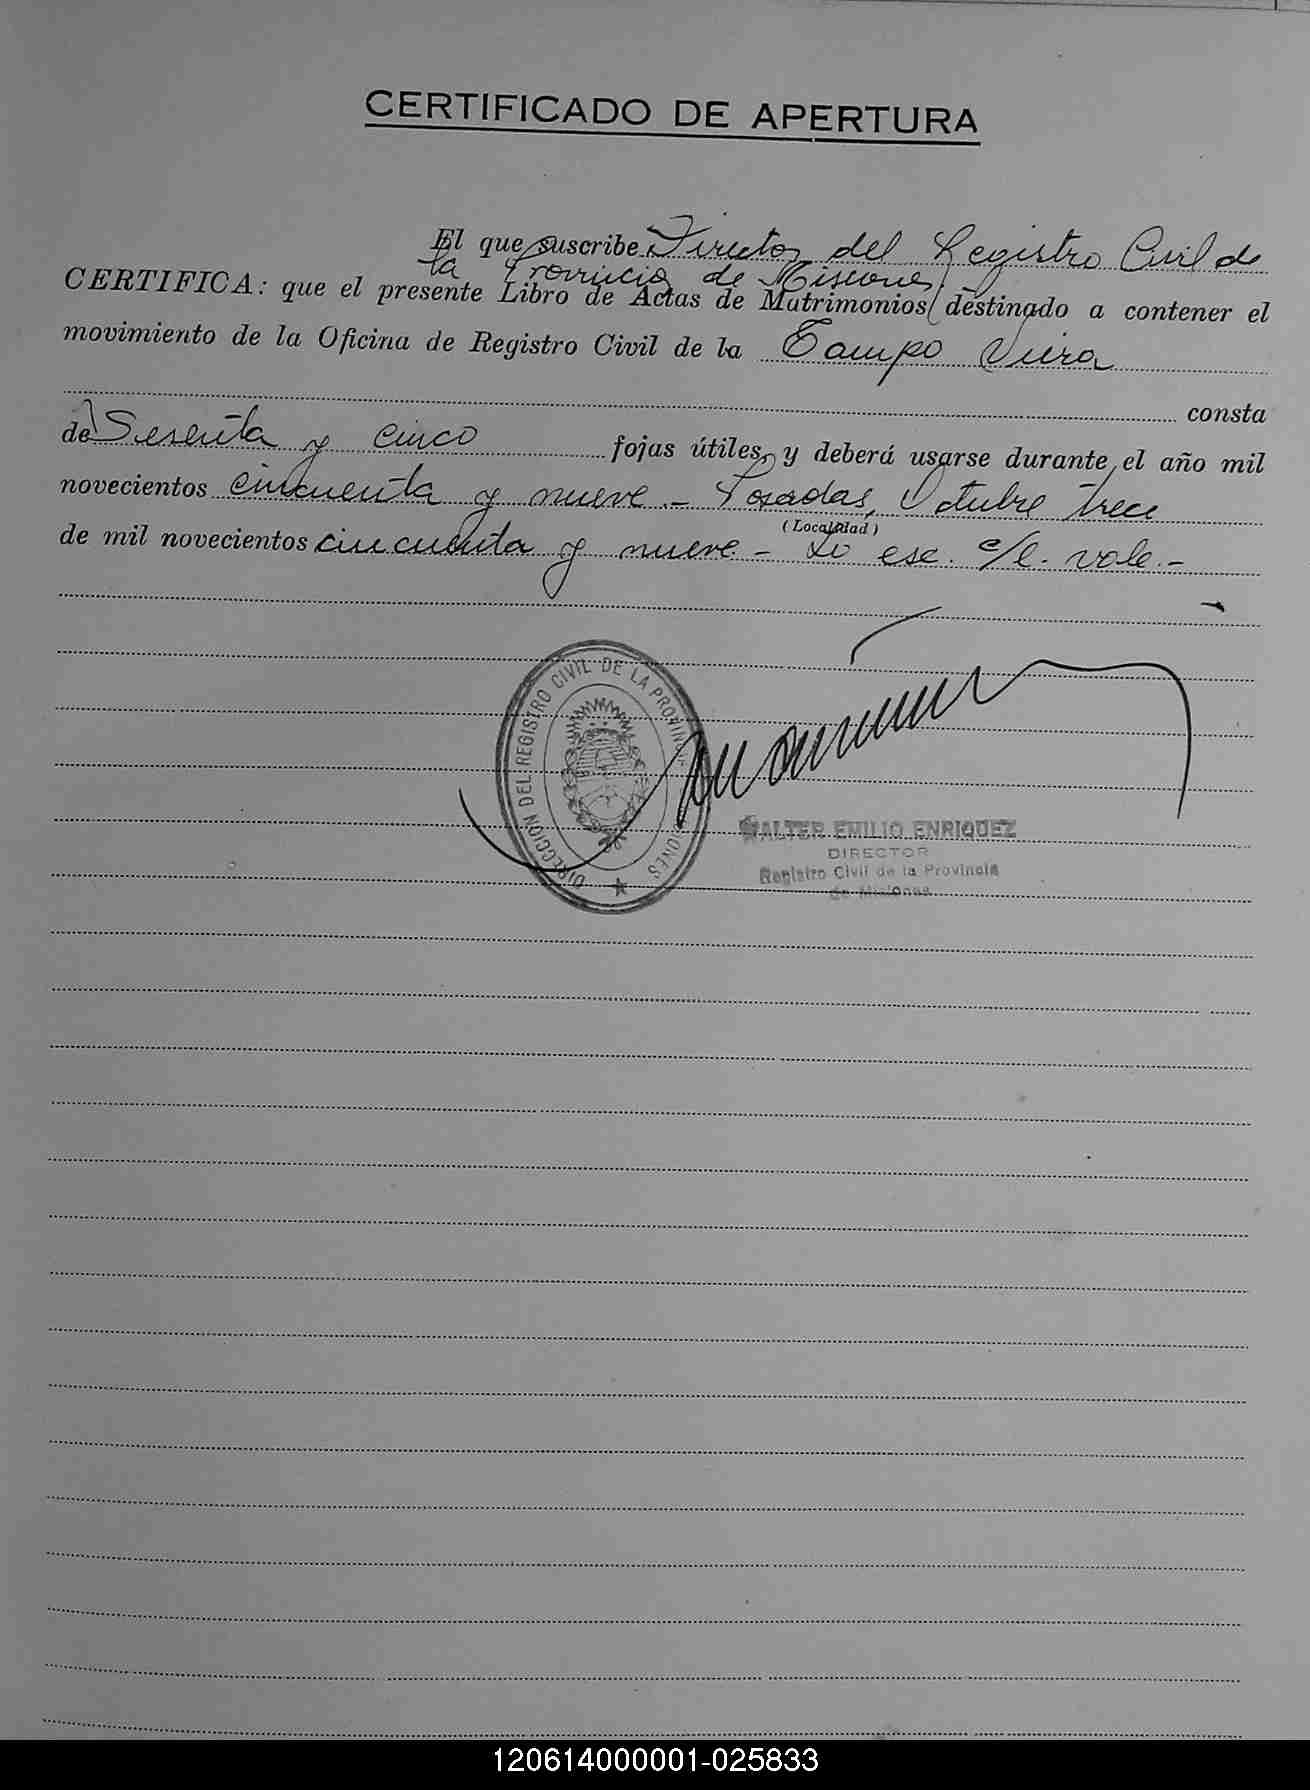 CERTIFICADO DE APERTURA
El que suscribe Director del Registro Civil de
la Provincia de Misiones
CERTIFICA: que el presente Libro de Actas de Matrimonios destinado a contener el
movimiento de la Oficina de Registro Civil de la Campo Viera
consta
de Sesenta y cinco fojas útiles, y deberá usarse durante el año mil
novecientos cincuenta y nueve - Posadas, Octubre trece
(Localidad)
de mil novecientos cincuenta y nueve - Lo esc. e/l. vale.-
DIRECCION DEL REGISTRO CIVIL DE LA PROVINCIA MISIONES
WALTER EMILIO ENRIQUEZ
DIRECTOR
Registro Civil de la Provincia
de Misiones
120614000001-025833